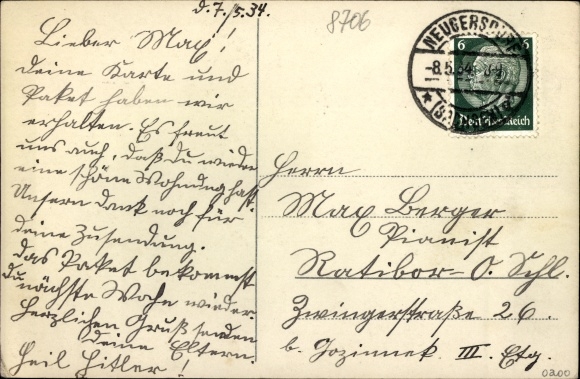 d. 7./5.34.
8706
Lieber Max!
deine Karte und
Paket haben wir
erhalten. Es freut
uns auch, daß du wieder
eine schöne Wohnung hast.
Unsern dank noch für
deine Zusendung.
das Paket bekommst
du nächste Woche wieder.
Herzlichen Gruß senden
deine Eltern.
Heil Hitler!
NEUGERSDORF
-8.5.34
6 6
Deutsches Reich
Herrn
Max Berger
Pianist
Ratibor-O. Schl.
Zwingerstraße 26.
b. Gozinnek III. Etg.
0200